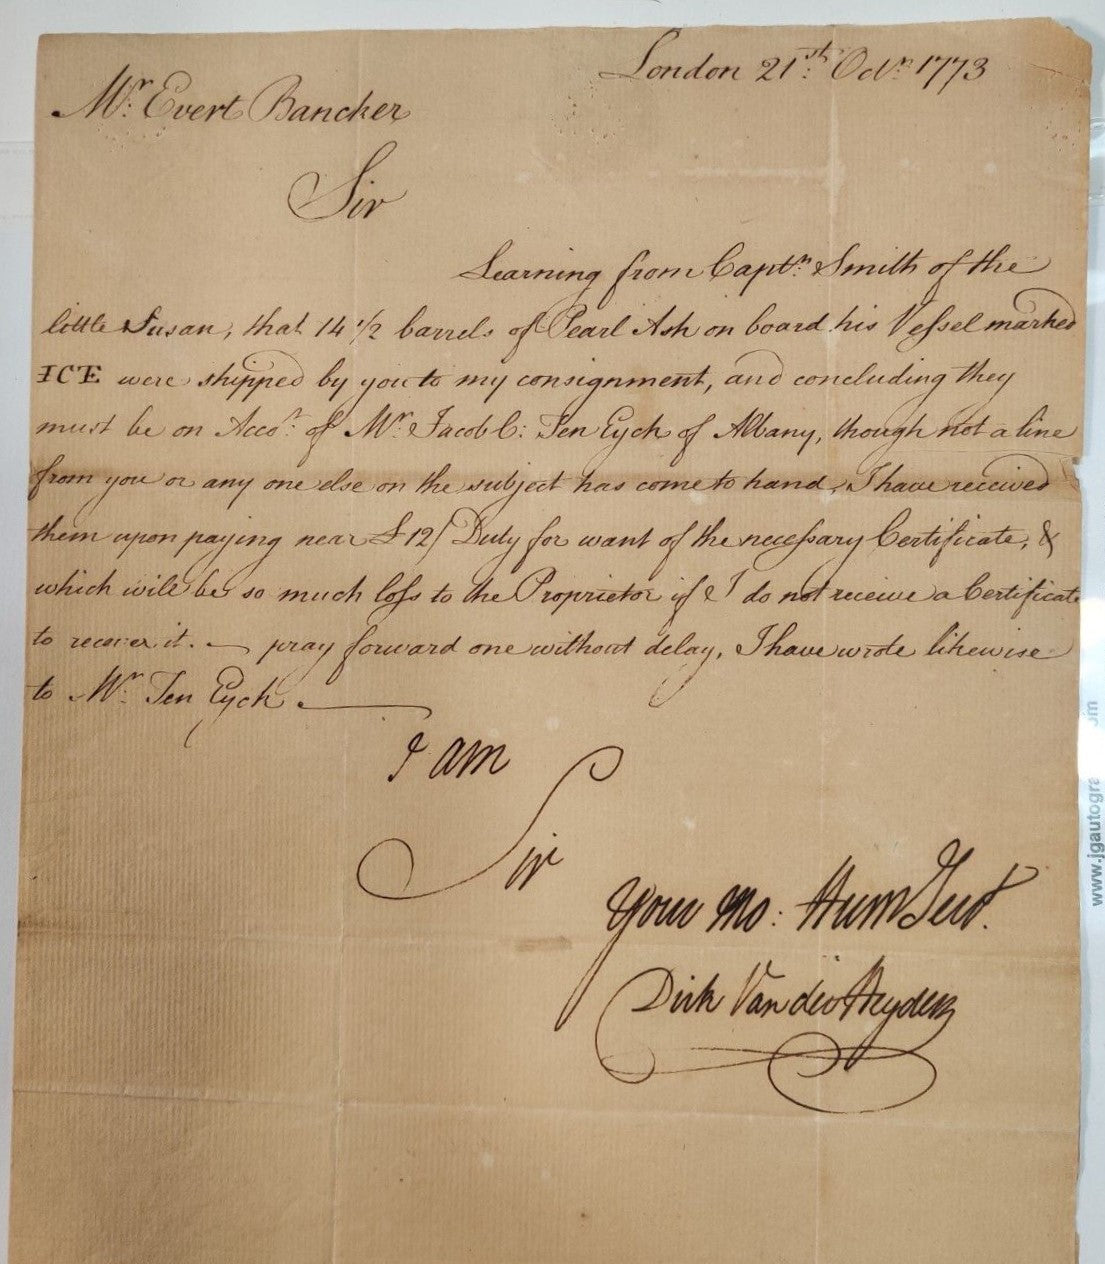 London 21st. Octr. 1773
Mr. Evert Bancker
Sir
Learning from Captn. Smith of the
little Susan, that 14 1/2 barrels of Pearl Ash on board his Vessel marked
ICE were shipped by you to my consignment, and concluding they
must be on Accot. of Mr. Jacob C: Ten Eyck of Albany, though not a line
from you or any one else on the subject has come to hand, I have received
them upon paying near £12/ Duty for want of the necessary Certificate, &
which will be so much loss to the Proprietor if I do not receive a Certificate
to recover it. — pray forward one without delay, I have wrote likewise
to Mr. Ten Eyck.
I am
Sir
Your Mo: Hum Servt.
Dirk Van der Heyden
www.jgautogra
om